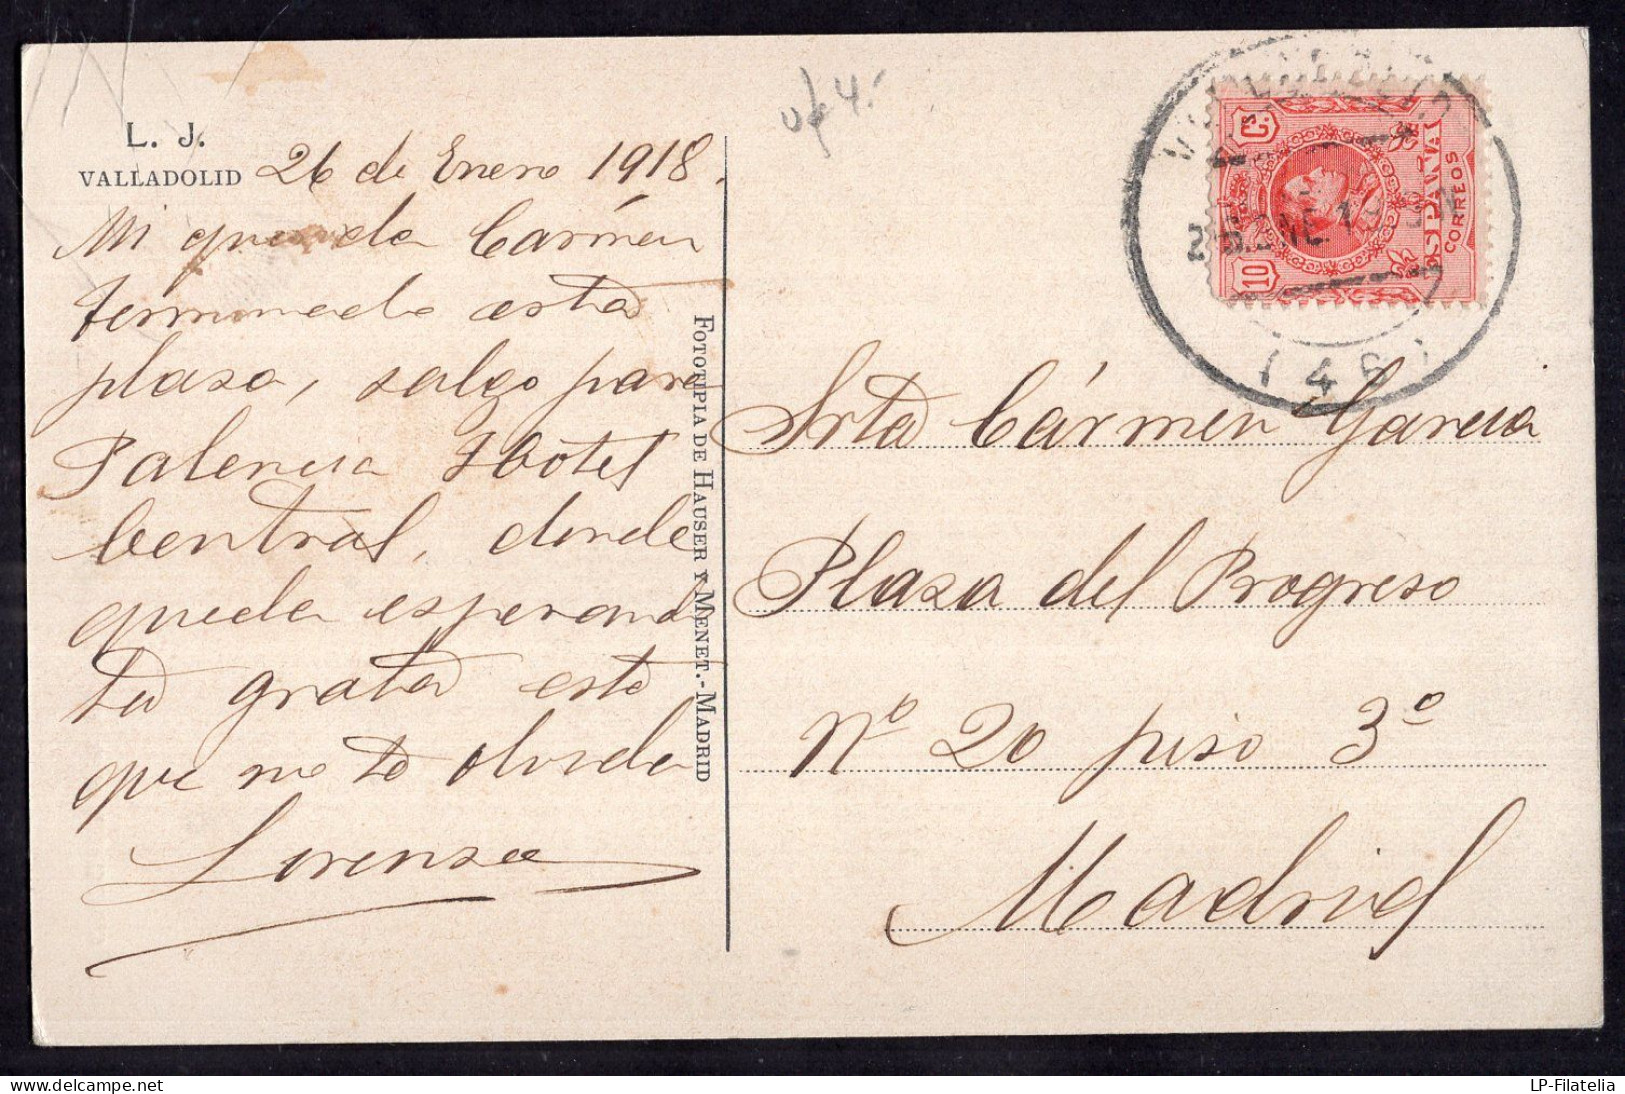 L. J.
VALLADOLID 26 de Enero 1918.
Mi querida Cármen
terminada esta
plasa, salgo para
Palencia Hotel
Central, donde
queda esperando
tu grata este
que no te olvida
Lorenzo
FOTOTIPIA DE HAUSER Y MENET.-MADRID
10 C.
ESPAÑA
CORREOS
Srta Cármen Garcia
Plaza del Progreso
Nº 20 piso 3º
Madrid
LP-Filatelia